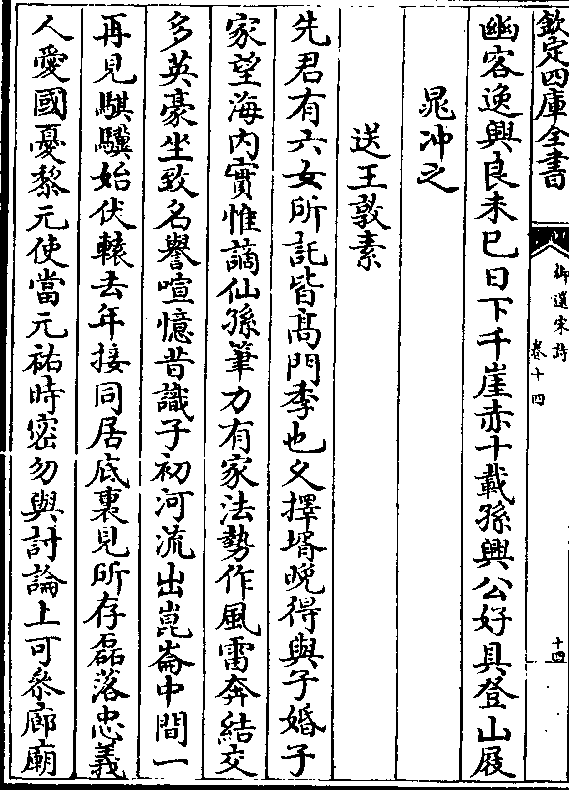 欽定四庫全書
御選宋詩
卷十四
十四
幽客逸興良未已日下千崖赤十載孫興公好具登山屐
晁沖之
送王敦素
先君有六女所託皆高門季也久擇壻晚得與子婚子
家望海内實惟謫仙孫筆力有家法勢作風雷奔結交
多英豪坐致名譽喧憶昔識子初河流出崑崙中間一
再見騏驥始伏轅去年接同居底裏見所存磊落忠義
人愛國憂黎元使當元祐時密勿與討論上可參廊廟